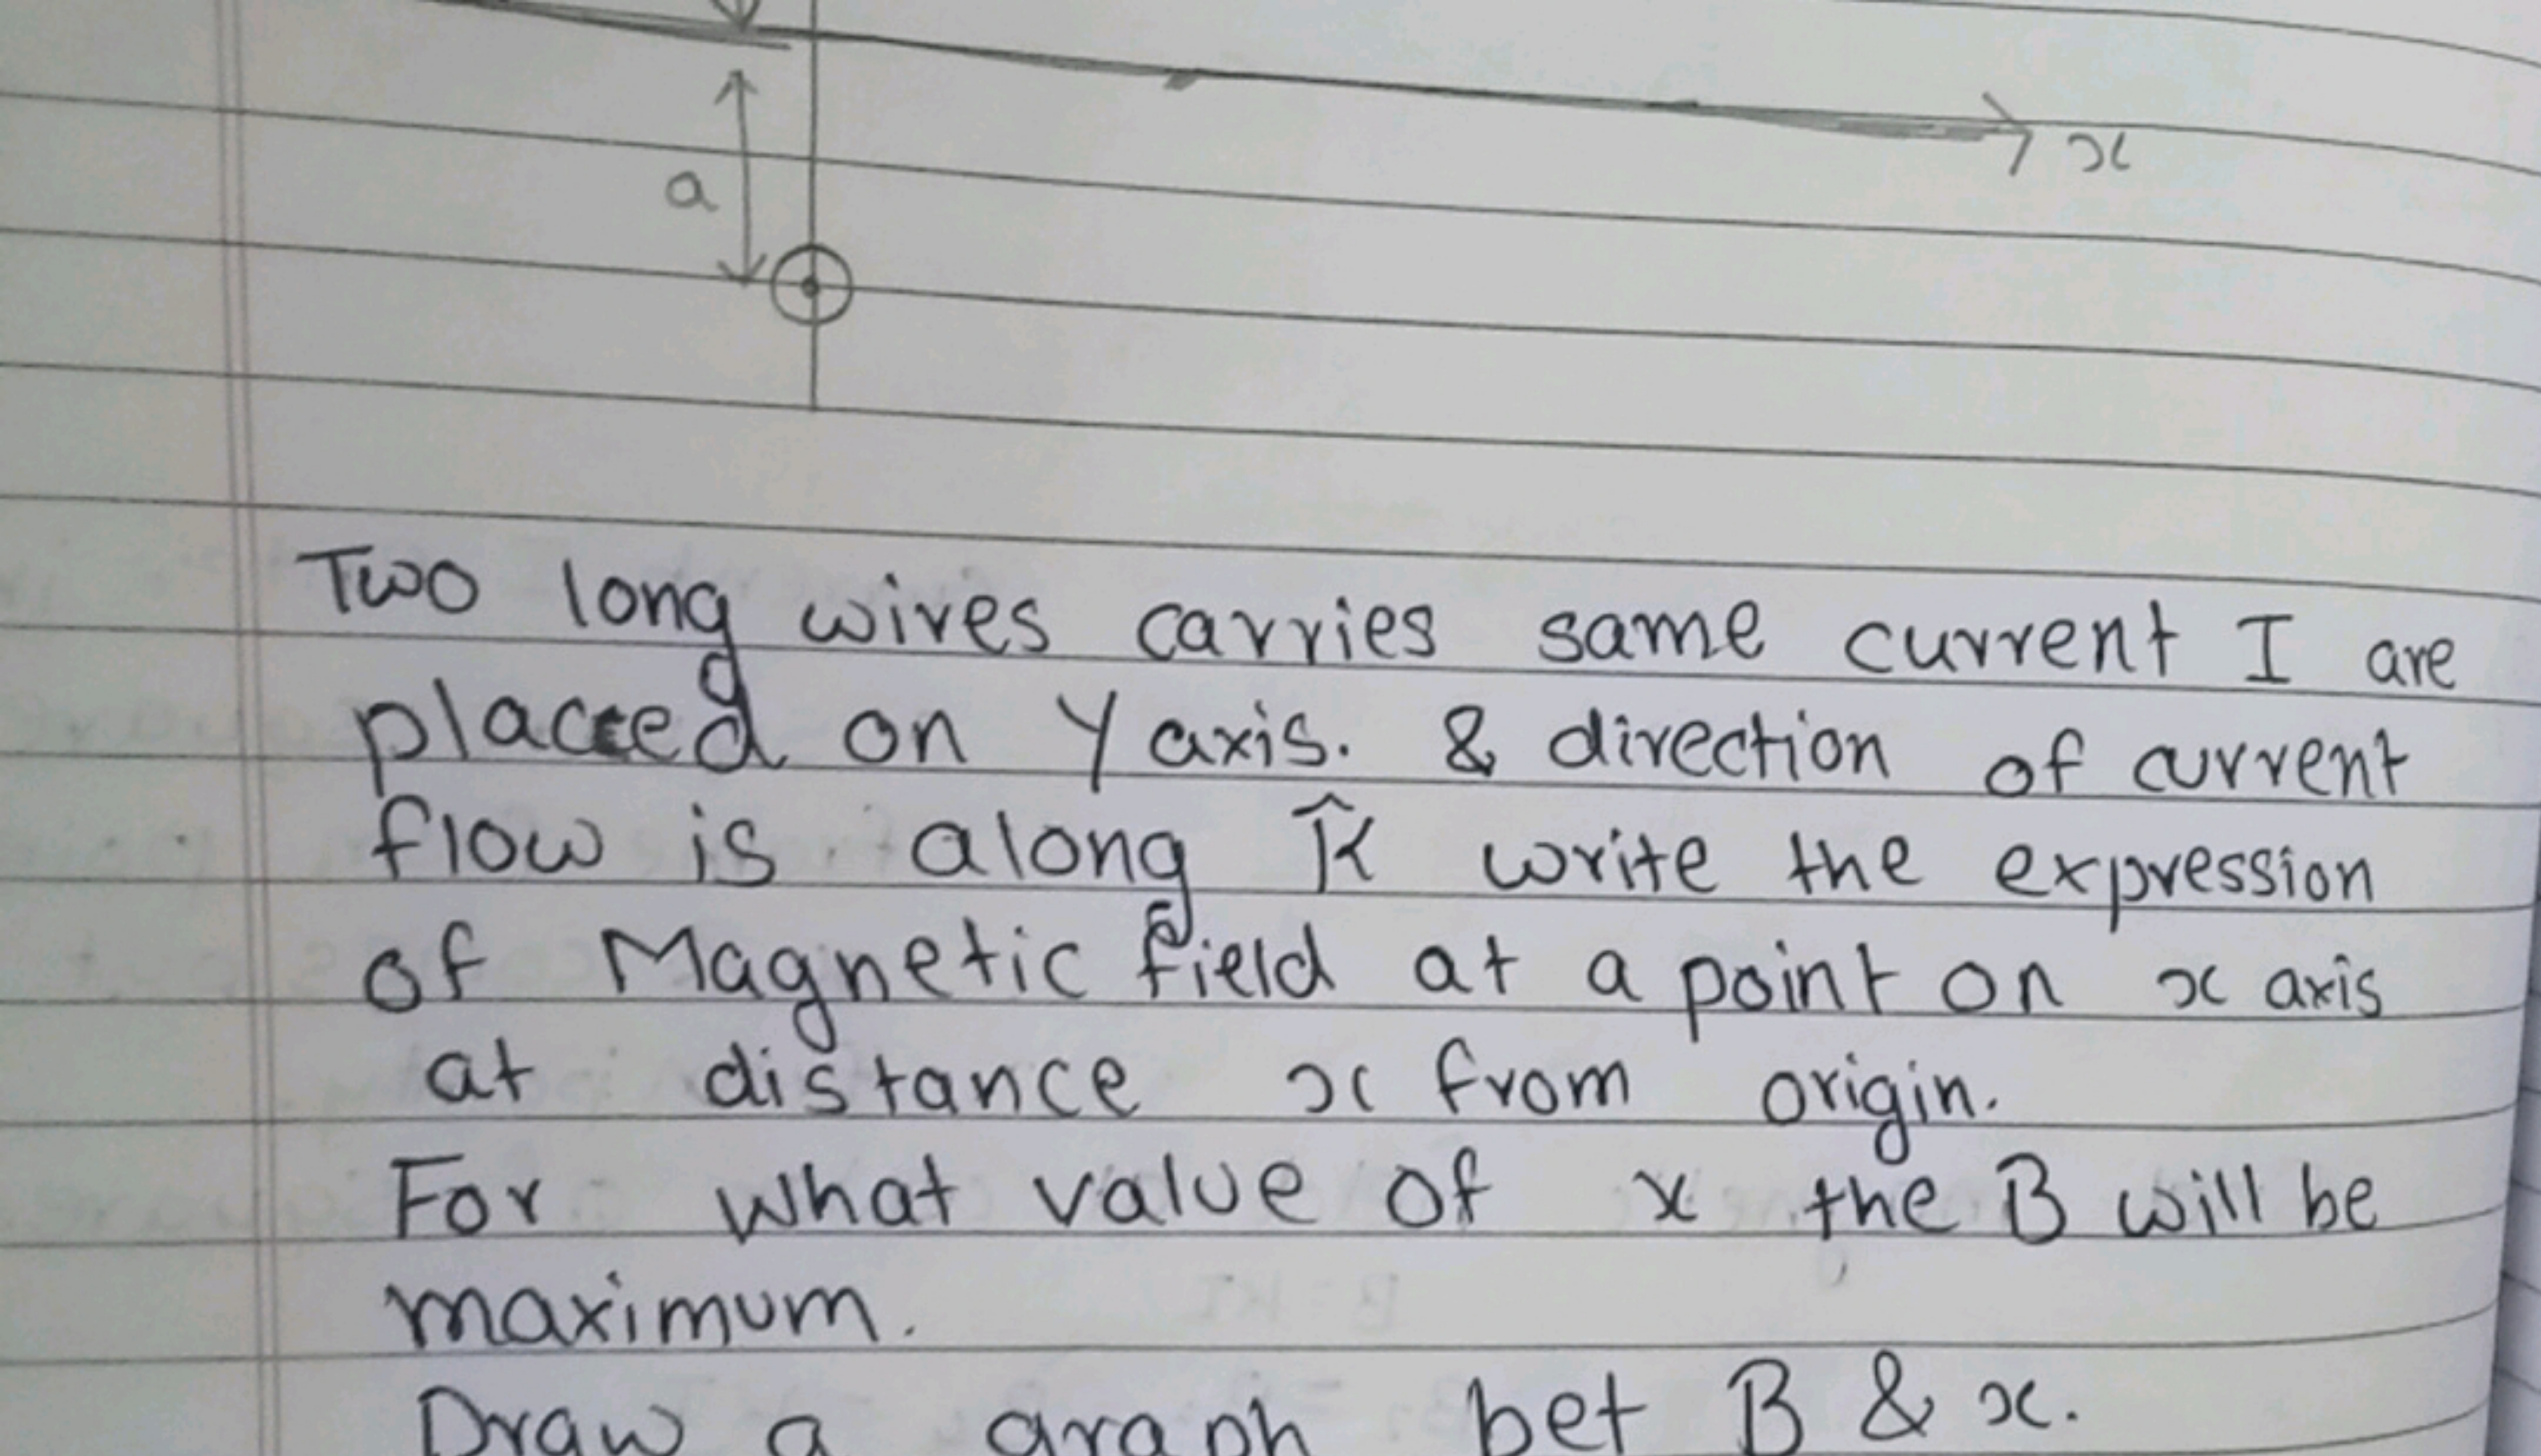 x
a
Two long wires carries same current I are
placed on Y axis. & direction of current
flow is along K̂ write the expression
of Magnetic field at a point on x axis
at distance x from origin.
For what value of x the B will be
maximum.
Draw a graph bet B & x.